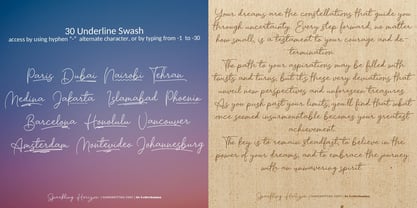 30 Underline Swash
access by using hyphen "-" alternate character, or by typing from -1 to -30
Paris Dubai Nairobi Tehran
Medina Jakarta Islamabad Phoenix
Barcelona Honolulu Vancouver
Amsterdam Montevideo Johannesburg
Your dreams are the constellations that guide you
through uncertainty. Every step forward, no matter
how small, is a testament to your courage and de-
termination.
The path to your aspirations may be filled with
twists and turns, but it's these very deviations that
unveil new perspectives and unforeseen treasures.
As you push past your limits, you'll find that what
once seemed insurmountable becomes your greatest
achievement.
The key is to remain steadfast, to believe in the
power of your dreams, and to embrace the journey
with an unwavering spirit.